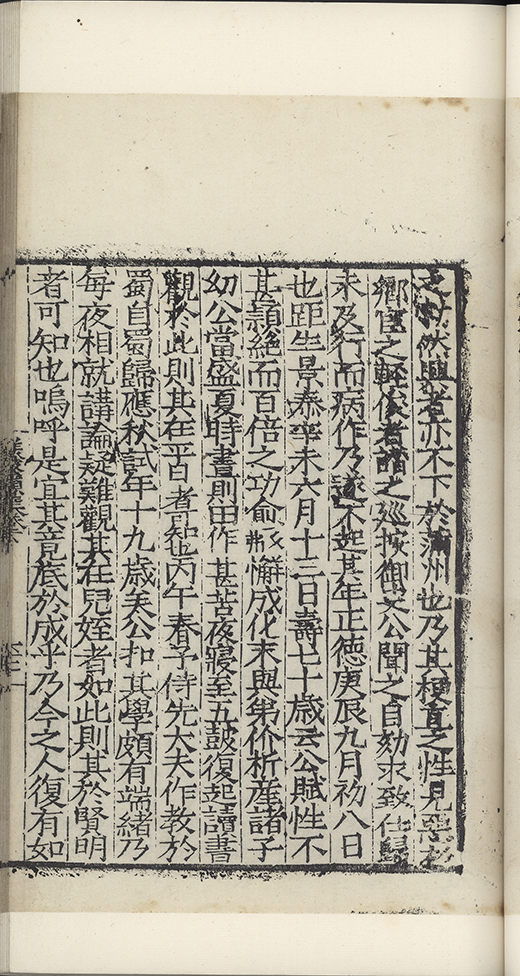 然興者亦不下於蒲州也乃其梗直之性見惡於
鄉官之輕俊者譖之巡按御史公聞之自劾求致仕歸
未及行而病作乃遂不起其年正德庚辰九月初八日
也距生景泰辛未六月十三日壽七十歲云公賦性不
甚穎絕而百倍之功愈弗懈成化末與弟价析產諸子
幼公當盛夏時晝則田作甚苦夜寢至五鼓復起讀書
觀於此則其在平日者可知也丙午春予侍先大夫作教於
蜀自蜀歸應秋試年十九歲矣公扣其學頗有端緒乃
每夜相就講論疑難觀其在兒姪者如此則其於賢明
者可知也嗚呼是宜其竟底於成乎乃今之人復有如